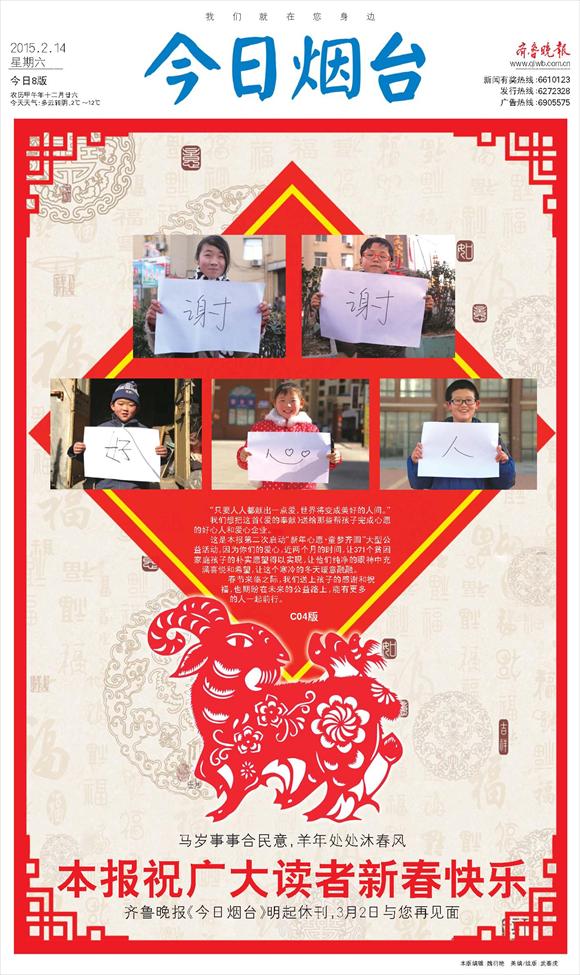 我们就在您身边
2015.2.14
星期六
今日8版
农历甲午年十二月廿六
今天天气:多云转阴,2℃~12℃
今日烟台
齐鲁晚报
www.qlwb.com.cn
新闻有奖热线:6610123
发行热线:6272328
广告热线:6905575
谢
谢
好
人
人
“只要人人都献出一点爱,世界将变成美好的人间。”
我们想把这首《爱的奉献》送给那些帮孩子完成心愿
的好心人和爱心企业。
这是本报第二次启动“新年心愿·童梦齐圆”大型公
益活动,因为你们的爱心,近两个月的时间,让371个贫困
家庭孩子的朴实愿望得以实现,让他们纯净的眼神中充
满喜悦和希望,让这个寒冷的冬天暖意融融。
春节来临之际,我们送上孩子的感谢和祝
福,也期盼在未来的公益路上,能有更多
的人一起前行。
C04版
吉祥
马岁事事合民意,羊年处处沐春风
本报祝广大读者新春快乐
齐鲁晚报《今日烟台》明起休刊,3月2日与您再见面
本版编辑 魏衍艳 美编/组版 武春虎